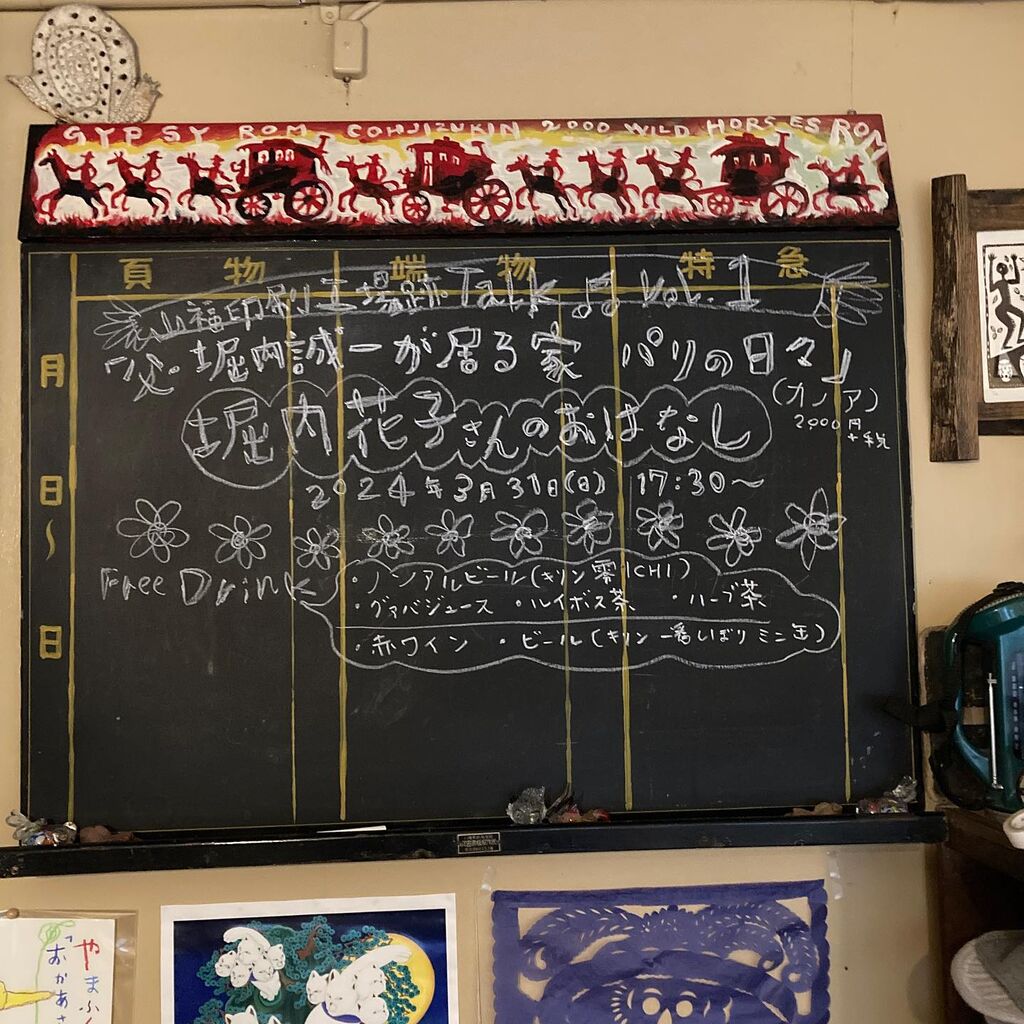 GYPSY ROM COHJIZUKIN 2000 WILD HORSES ROM
頁物 端物 特急
山福印刷工場跡 Talk ♬ Vol.1
堀内誠一が居る家 パリの日々」
(カノア)
2000円
+税
堀内花子さんのおはなし
2024年3月31日(日) 17:30〜
月
日
〜
日
Free Drink
・ノンアルビール(キリン零ICHI)
・グァバジュース ・ルイボス茶 ・ハーブ茶
・赤ワイン ・ビール(キリン一番しぼりミニ缶)
やまふく
「おかあさ